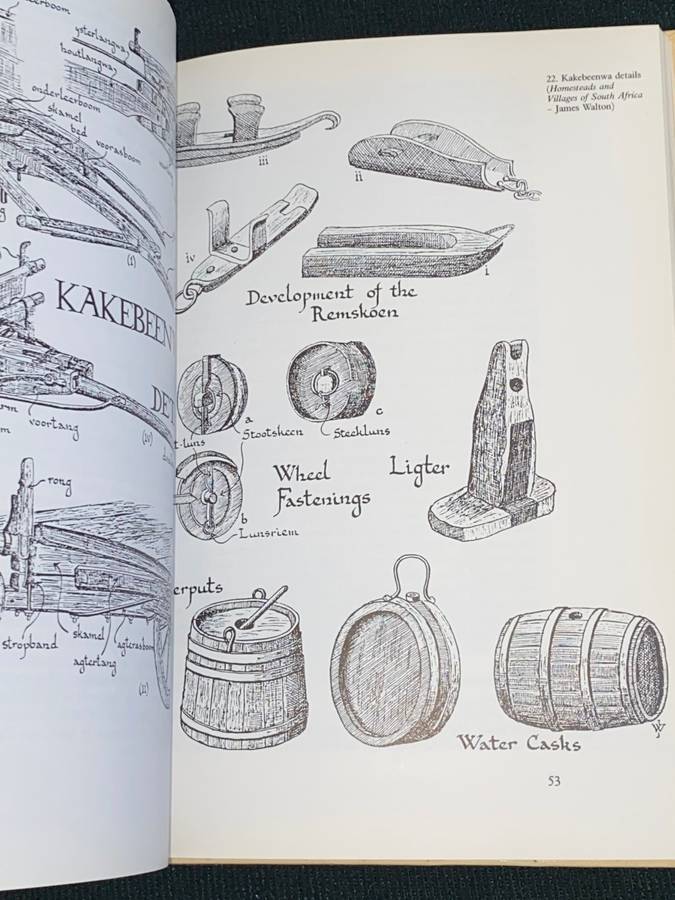 ysterlangwa
houtlangwa
onderleerboom
skamel
bed
voorasboom
(I)
KAKEBEEN
DET
voortang
(IV)
rong
stropband
skamel
agtertang
agterasboom
(II)
22. Kakebeenwa details
(Homesteads and
Villages of South Africa
– James Walton)
iii
ii
iv
i
Development of the
Remskoen
a
c
Stootskeen
Steekluns
b
Lunsriem
Wheel
Fastenings
Ligter
erputs
Water Casks
53